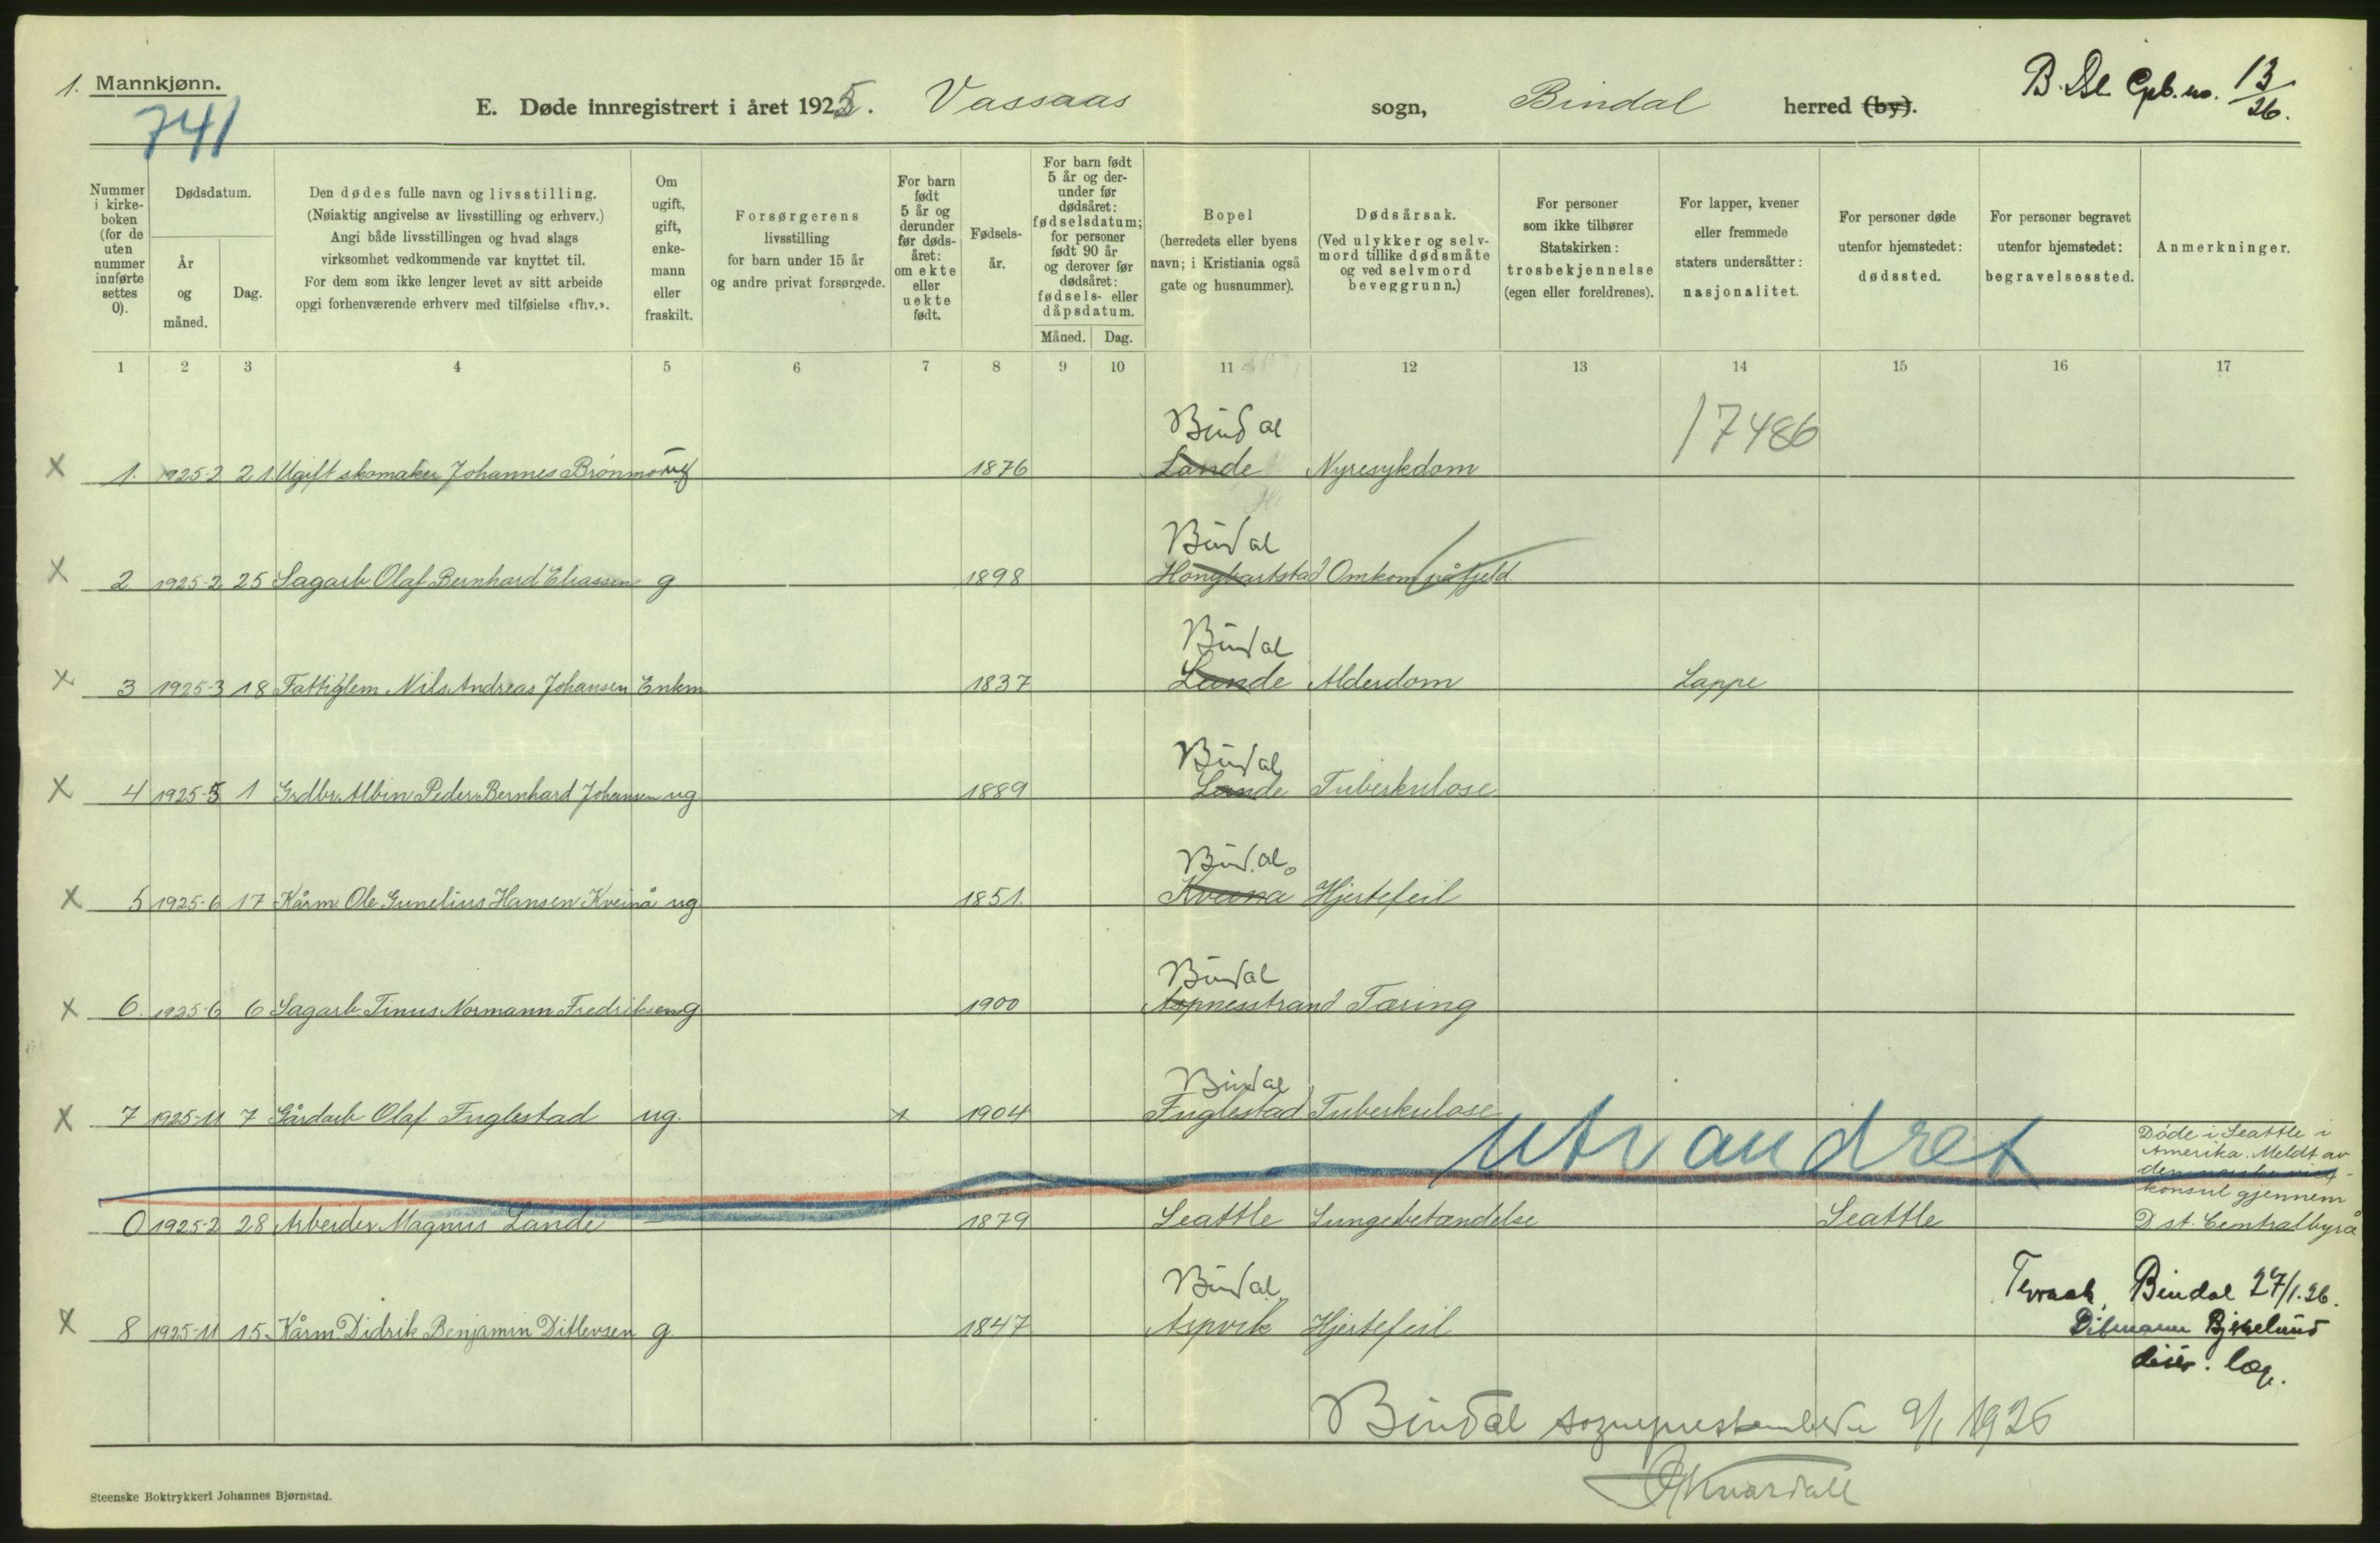 1. Mannkjønn.
741
E. Døde innregistrert i året 1925. Vassaas sogn, Bindal herred (by).
B. Dl. Gpb. no. 13/26.
Nummer i kirke-boken (for de uten nummer innførte settes 0).
Dødsdatum.
År og måned.
Dag.
Den dødes fulle navn og livsstilling.
(Nøiaktig angivelse av livsstilling og erhverv.)
Angi både livsstillingen og hvad slags
virksomhet vedkommende var knyttet til.
For dem som ikke lenger levet av sitt arbeide
opgi forhenværende erhverv med tilføielse «fhv.».
Om ugift, gift, enke-mann eller fraskilt.
Forsørgerens
livsstilling
for barn under 15 år
og andre privat forsørgede.
For barn født 5 år og derunder før døds-året: om ekte eller uekte født.
Fødsels-år.
For barn født 5 år og der-under før dødsåret: fødselsdatum; for personer født 90 år og derover før dødsåret: fødsels- eller dåpsdatum.
Måned. Dag.
Bopel
(herredets eller byens
navn; i Kristiania også
gate og husnummer).
Dødsårsak.
(Ved ulykker og selv-
mord tillike dødsmåte
og ved selvmord
beveggrunn.)
For personer
som ikke tilhører
Statskirken:
trosbekjennelse
(egen eller foreldrenes).
For lapper, kvener
eller fremmede
staters undersåtter:
nasjonalitet.
For personer døde
utenfor hjemstedet:
dødssted.
For personer begravet
utenfor hjemstedet:
begravelsessted.
Anmerkninger.
1 2 3 4 5 6 7 8 9 10 11 12 13 14 15 16 17
17486
Bindal
x 1. 1925-2 21. Ugift skomaker Johannes Brønmo ug 1876 Lande Nyresykdom
Bindal
x 2 1925-2 25 Sagarb. Olaf Bernhard Eliassen g 1898 Hongbartstad Omkom på fjeld
Bindal
x 3 1925-3 18 Fattiglem Nils Andreas Johansen Enkm. 1837 Lande Alderdom Lappe
Bindal
x 4 1925-5 1 Grdbr. Albin Peder Bernhard Johansen ug 1889 Lande Tuberkulose
Bindal
x 5 1925-6 17 Kårm. Ole Gunelius Hansen Kveinå ug 1851. Kveina Hjertefeil
Bindal
x 6. 1925-6 6 Sagarb. Tinus Normann Fredriksen g 1900 Aspnesstrand Tæring
Bindal
x 7 1925-11 7 Gårdarb Olaf Fuglestad ug. x 1904 Fuglestad Tuberkulose
utvandret
Døde i Seattle i
Amerika. Meldt av
den norske vise-
konsul gjennem
0 1925-2 28 Arbeider Magnus Lande — 1879 Seattle Lungebetændelse Seattle D st. Centralbyrå
Bindal
x 8 1925-11 15. Kårm. Didrik Benjamin Ditlevsen g. 1847 Aspvik Hjertefeil
Terraak, Bindal 27/1.26.
Ditmann Bjkelund
distr. læge.
Bindal sogneprestembede 9/1 1926
Steenske Boktrykkeri Johannes Bjørnstad.